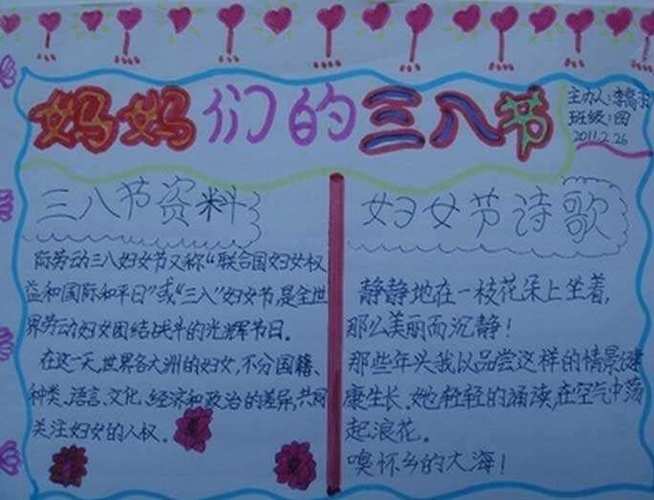 妈妈们的三八节
主办人:李
班级:四
2011.2.26
三八节资料
际劳动三八妇女节又称“联合国妇女权
益和国际和平日”或“三八”妇女节,是全世
界劳动妇女团结战斗的光辉节日。
在这一天,世界各大洲的妇女,不分国籍、
种类、语言、文化、经济和政治的差异,共同
关注妇女的人权。
妇女节诗歌
静静地在一枝花朵上坐着,
那么美丽而沉静!
那些年头我以品尝这样的情景健
康生长。她轻轻的涌读,在空气中荡
起浪花。
嗅怀乡的大海!